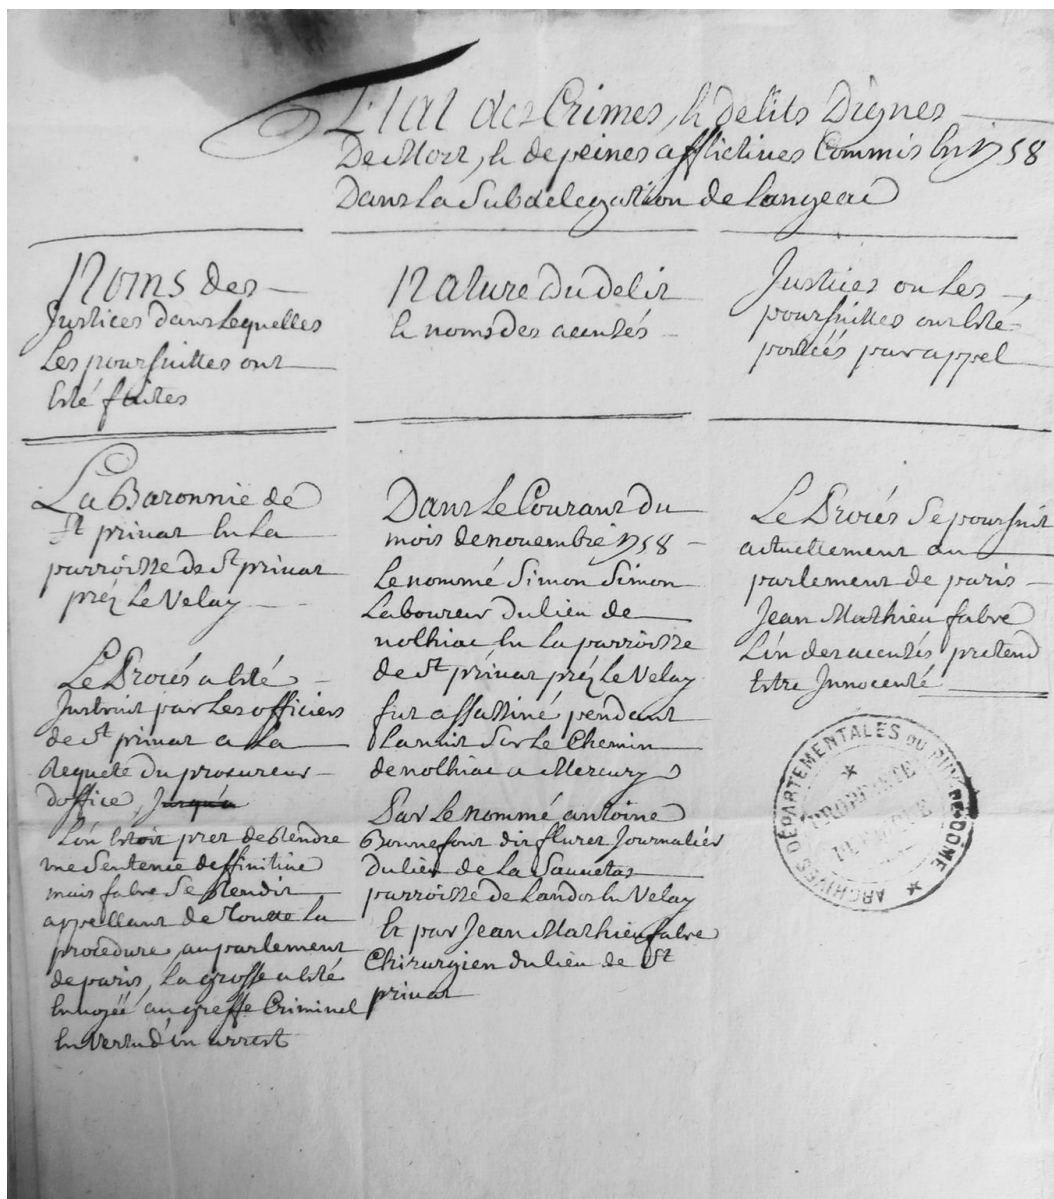 Etat des Crimes, & delits Dignes
De Mort, & de peines afflictives Commis En 1758
Dans La Subdelegation de Langeac
Noms des
Justices dans Lesquelles
Les poursuittes ont
Eté faites
Nature Du delit
& noms des accusés
Justices ou Les
poursuittes ont Eté
portéés par appel
La Baronnie de
St privat En La
parroisse de St privat
préz Le Velay
Le Procés a Eté
Instruit par Les officiers
de St privat a La
Requete du procureur
doffice, Jusqu'a
L'on Etoit pret de Rendre
une Sentence deffinitive
mais fabre Se Rendit
appellant de Toutte La
procedure, au parlement
de paris, La grosse a Eté
Envoyéé au greffe Criminel
En Vertu d'un arrest
Dans Le Courant du
mois de novembre 1758
Le nommé Simon Simon
Laboureur du lieu de
nolhiac En La parroisse
de St privat préz Le Velay
fut assassiné pendant
La nuit Sur Le Chemin
de nolhiac a Mercury
Par Le nommé antoine
Bonnefont dit fluret Journalier
du lieu de La Sauvetat
parroisse de Landos En Velay
Et par Jean Mathieu fabre
Chirurgien du lieu de St
privat
Le Procés Se poursuit
actuellement au
parlement de paris
Jean Mathieu fabre
L'un des accusés pretend
Estre Innocenté
ARCHIVES DÉPARTEMENTALES DU PUY-DE-DOME
PROPRIÉTÉ
PUBLIQUE